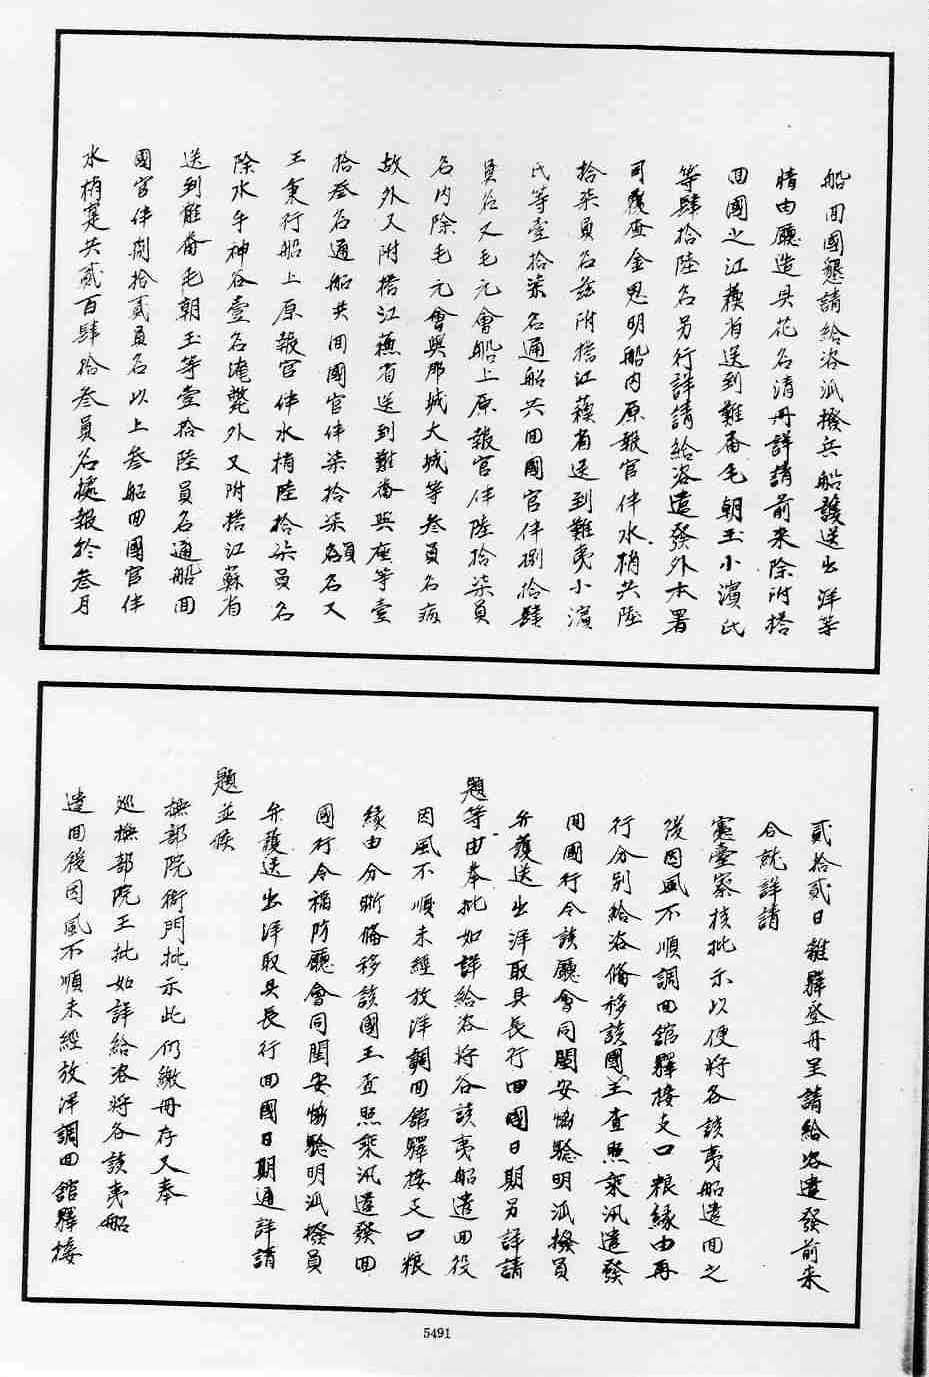 船回國懇請給咨派撥兵船護送出洋等
情由廳造具花名清冊詳請前来除附搭
回國之江蘓省送到難畨毛朝玉小濱氏
等肆拾陸名另行詳請給咨遣發外本署
司覆查金思明船内原報官伴水梢共陸
拾柒員名兹附搭江蘓省送到難夷小濵
氏等壹拾柒名通船共回國官伴捌拾肆
員名又毛元會船上原報官伴陸拾柒員
名内除毛元會與那城大城等叁員名病
故外又附搭江蘓省送到難畨與座等壹
拾叁名通船共回國官伴柒拾柒員名又
王秉行船上原報官伴水梢陸拾柒員名
除水手神谷壹名淹斃外又附搭江蘇省
送到難畨毛朝玉等壹拾陸員名通船回
國官伴捌拾貳員名以上叁船回國官伴
水梢寔共貳百肆拾叁員名據報於叁月
貳拾貳日離驛登舟呈請給咨遣發前来
合就詳請
憲臺察核批示以便將各該夷船遣回之
後因風不順調回舘驛接支口粮緣由再
行分别給咨俻移該國王查照乘汛遣發
回國行令該廳會同閩安恊聼明派撥員
弁護送出洋取具長行回國日期另詳請
題等由奉批如詳給咨将谷該夷船遣回役
因風不順未經放洋調回舘驛接支口粮
緣由分晰俻移該國王查照乘汛遣發回
國行令福防廳會同閩安恊聼明派撥員
弁護送出洋取具長行回國日期通詳請
題並候
撫部院衙門批示此仍繳冊存又奉
巡撫部院王批如詳給咨將各該夷船
遣回後因風不順未經放洋調回舘驛接
5491